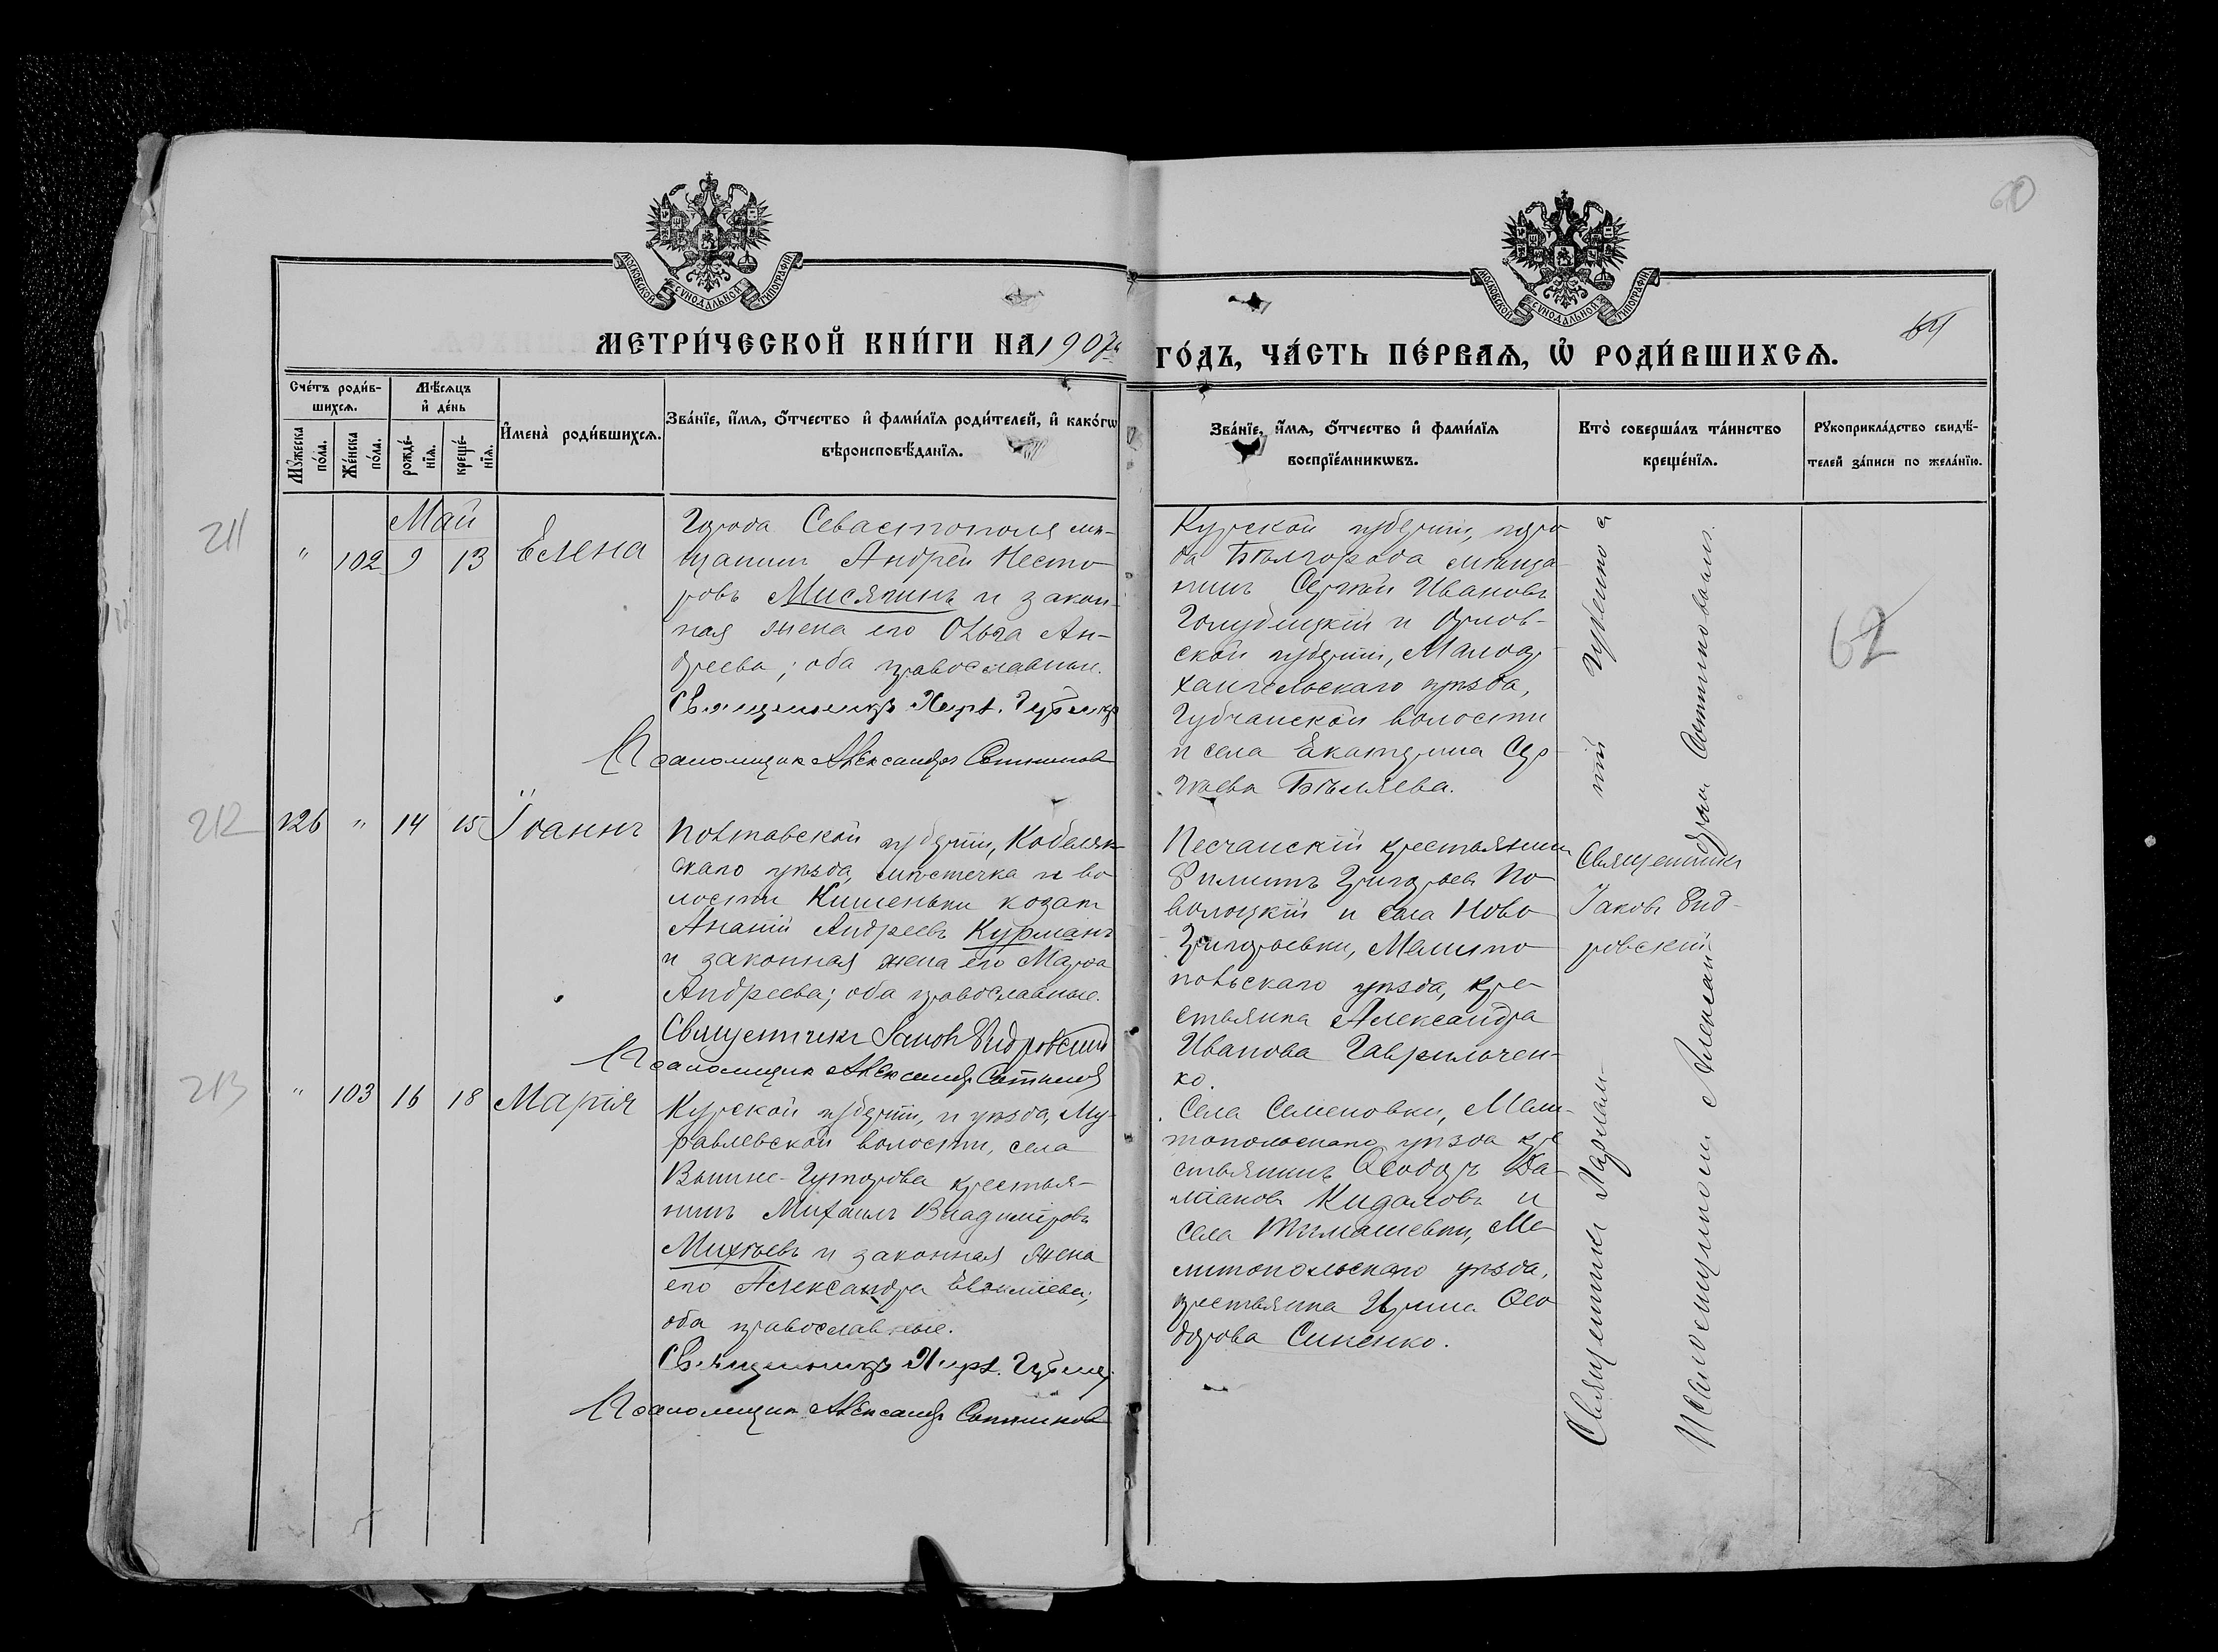 60
МОСКОВСКОЙ СѴНОДАЛЬНОЙ ТИПОГРАФІИ
МОСКОВСКОЙ СѴНОДАЛЬНОЙ ТИПОГРАФІИ
МЕТРИ́ЧЕСКОЙ КНИ́ГИ НА 1907й
ГО́ДЪ, ЧА́СТЬ ПЕ́РВАѦ, Ѡ҆ РОДИ́ВШИХСѦ.
64
Сче́тъ роди́в-
шихсѧ.
Мꙋжеска по́ла.
Же́нска по́ла.
Мѣ́сѧцъ
и҆ де́нь
рожде́-
нїѧ.
креще́-
нїѧ.
И҆мена̀ роди́вшихсѧ.
Зва́нїе, и҆́мѧ, ѻ҆́тчество и҆ фами́лїѧ роди́телей, и҆ како́гѡ
вѣроисповѣ́данїѧ.
Зва́нїе, и҆́мѧ, ѻ҆́тчество и҆ фами́лїѧ
воспрїе́мникѡвъ.
Кто̀ соверша́лъ та́инство
креще́нїѧ.
Рꙋкоприкла́дство свидѣ́-
телей за́писи по жела́нїю.
Май
211
" 102 9 13 Елена
Города Севастополя мѣ-
щанинъ Андрей Несто-
ровъ Мисягинъ и закон-
ная жена его Ольга Ан-
дреева; оба православные.
Священникъ
Псаломщикъ Александръ
Курской губерніи, горо-
да Бѣлгорода мѣща-
нинъ Сергѣй Ивановъ
Голубицкій и Орлов-
ской губерніи, Малоар-
хангельскаго уѣзда,
Губчанской волости
и села Екатерина Сер-
гѣева Бѣляева.
212
126 " 14 15 Іоаннъ
Полтавской губерніи, Кобеляк-
скаго уѣзда, мѣстечка и во-
лости Кишеньки козакъ
Ананій Андреевъ Курманъ
и законная жена его Марѳа
Андреева; оба православные.
Священникъ Іаковъ
Псаломщикъ Александръ
Песчанскій крестьянинъ
Филиппъ Григорьевъ По-
волоцкій и села Ново-
Григорьевки, Мелито-
польскаго уѣзда, кре-
стьянка Александра
Иванова Гавриличен-
ко.
Священникъ
Іаковъ
213
" 103 16 18 Марія
Курской губерніи, и уѣзда, Му-
равлевской волости, села
Вышне-Гуторова крестья-
нинъ Михаилъ Владиміровъ
Михѣевъ и законная жена
его Александра Евѳиміева;
оба православные.
Священникъ
Псаломщикъ Александръ
Села Семеновки, Мели-
топольскаго уѣзда кре-
стьянинъ Ѳеодоръ Да-
міановъ Кидаловъ и
села Тимашевки, Ме-
литопольскаго уѣзда,
крестьянка Ирина Ѳео-
дорова Синенко.
Священникъ
Псаломщикомъ
62